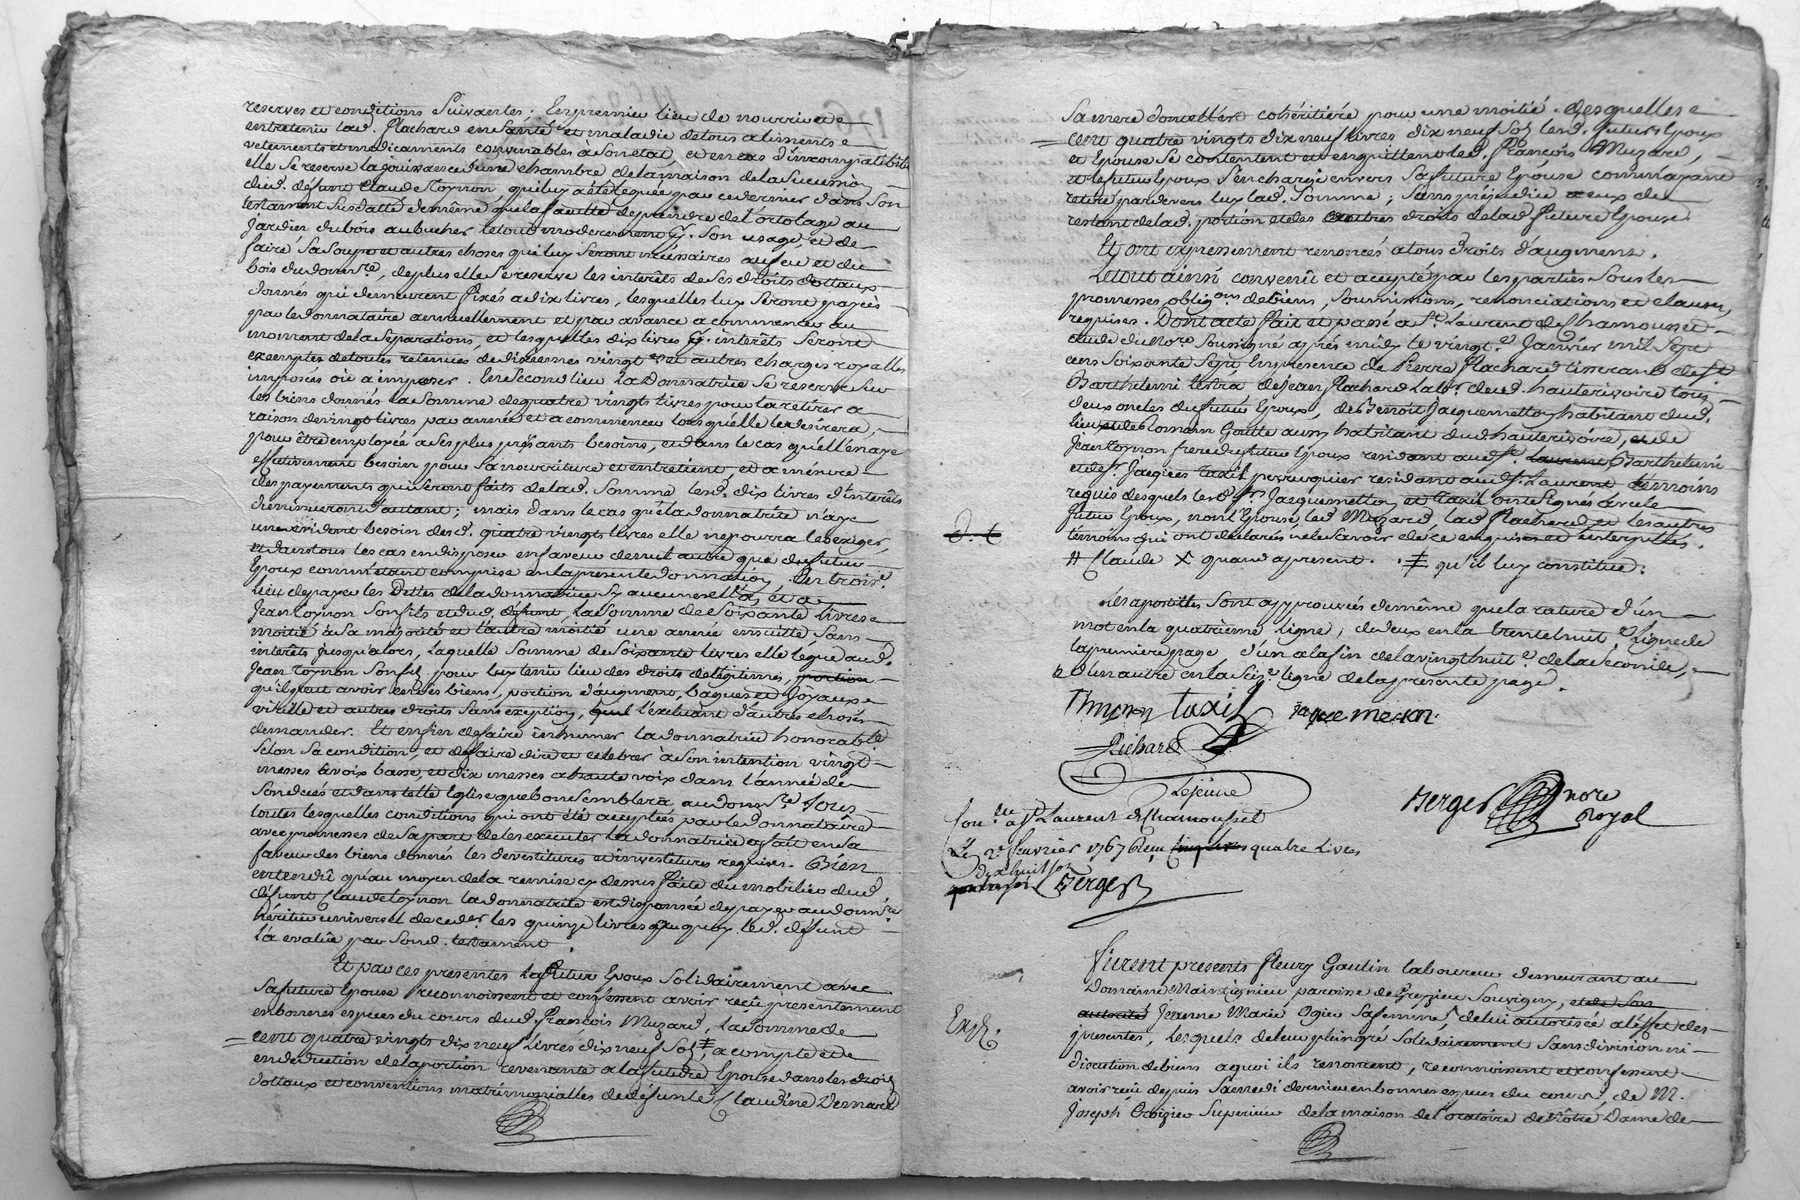 reserves et conditions Suivantes; En premier lieu de nourrir et
entretenir lad. Plachard en Santé et maladie de tous aliments
vetements et medicaments convenables à Son état, et en cas d'incompatibilité
elle Se reserve la jouissance d'une chambre de la maison de la Succession
dud. défunt Claude Coynon, qui luy a été leguée par ce dernier dans Son
testament Susdatté de même que la faculté de prendre de l'ortolage au
Jardin du bois au bucher le tout moderement pr. Son usage et de
faire Sa Soupe et autres choses qui luy Seront nécessaires au feu et du
bois du donre., de plus elle Se reserve les interêts de Ses droits dottaux
donnés qui demeurent fixés a dix livres, lesquelles luy Seront payées
par le donnataire annuellement et par avance a commencer au
moment de la Separation, et lesquelles dix livres pr. interêts Seront
exemptes de toutes retenues de dixiemes vingtes et autres charges royalles
imposés où a imposer. En Second lieu la Donnatrice Se reserve Sur
les biens donnés la Somme de quatre vingts livres pour la retirer a
raison de vingt livres par année et a commencer lorsqu'elle le desirera,
pour être employée a Ses plus préssants besoins, et dans le cas qu'elle n'aye
effectivement besoin pour Sa nourriture et entretient, et a mesure
des payements qui Seront faits de lad. Somme lesd. dix livres d'interêts
diminueront d'autant; mais dans le cas que la donnatrice n'aye
un evident besoin desd. quatre vingts livres elle ne pourra les exiger,
et dans tous les cas en disposer en faveur de nul autre que du futur
Epoux comme étant comprise en la presente donnation, En troise.
lieu de payer les Dettes de la donnatrice Sy aucunes il y a, et a
Jean Coynon Son fils et dud. défunt, la Somme de Soixante livres
moitié à Sa majorité et l'autre moitié une année ensuitte Sans
interêts jusqu'alors, laquelle Somme de Soixante livres elle legue aud.
Jean Coynon Son fils pour luy tenir lieu des droits de legitimes, portion
qu'il peut avoir sur Ses biens, portion d'augment, bagues et joyaux
virille et autres droits Sans exeption, l'excluant d'autres choses
demander. Et enfin de faire inhumer la donnatrice honorable.
Selon Sa condition, et de faire dire et celebrer à Son intention vingt
messes à voix basse, et dix messes a haute voix dans l'année de
Son decés et dans telle Eglise que bon Semblera au donnre. Sous
toutes lesquelles conditions qui ont été acceptées par le donnataire
avec promesses de Sa part de les executer la donnatrice a fait en Sa
faveur des biens donnés les devestitures et investitures requises. Bien
entendû qu'au moyen de la remise cy dessus faite du mobilier dud.
défunt Claude Coynon la donnatrice est dispensée de payer au donnre.
héritier universel de ce der. les quinze livres à quoy led. défunt
l'a evalué par Sond. testament.
Et par ces presentes le futur Epoux Solidairement avec
Sa future Epouse reconnoissent et confessent avoir reçû presentement
en bonnes especes du cours dud. François Muzard, la Somme de
cent quatre vingts dix neuf livres dix neuf Sols, a compte et
en deduction de la portion revenante a la future Epouse dans les droits
dottaux et conventions matrimonialles de défunte Claudine Desnard
Sa mere dont elle est cohéritière pour une moitié. desquelles
cent quatre vingts dix neuf livres dix neuf Sols lesd. futurs Epoux
et Epouse Se contentent et en quittent led. François Muzard,
et le futur Epoux S'en charge envers Sa future Epouse comme ayant
retiré pardevers luy lad. Somme; Sans préjudice a eux du
restant de lad. portion et des autres droits de lad. future Epouse.
Et ont expressement renoncés a tous droits d'augment.
Le tout ainsi convenû et accepté par les parties Sous les
promesses, obligons. de biens, Soumissions, renonciations et clauses
requises. Dont acte fait et passé a St. Laurent de Chamousset
etude du Nore. Soussigné aprés midy le vingte. Janvier mil Sept
cens Soixante Sept, En presence de Pierre Plachard tisserand de St.
Barthelemi Lestra, de Jean Plachard Labr. de id. hauterivoire tous
deux oncles du futur Epoux, de Benoit Jacquemetton habitant dud.
lieu de Romain Goutte aussy habitant dud hauterivoire, et de
Jean Coynon frere du futur Epoux residant aud. St. Laurent Barthelemi
et de Sr. Jacques Taxil perruquier residant aud. St. Laurent temoins
requis desquels lesd. Srs. Jacquemetton et Taxil ont Signés avec le
futur Epoux, non l'Epouse, led. Muzard, lad. Plachard, et les autres
témoins qui ont declarés ne le Savoir de ce enquis et interpellés.
# Claude X quand a present. ≠ qu'il luy constitue.
d. t
Les apostilles Sont approuvées de même que la rature d'un
mot en la quatrieme Ligne, de deux en la trente huite. Ligne de
la premiere page d'un a la fin de la vingt huite. de la Seconde,
& d'un autre en la Sixe. ligne de la presente page.
Thuyon taxil jaquemeton
Richard
Lejeune
Berger nore
Royal
Con.lé a St Laurent de Chamousset
Le 2e fevrier 1767 Reçu cinq livres quatre livres
Dix huit sols
Berger
Exp.
Furent presents Fleury Gaulin laboureur demeurant au
Domaine Mainzigneu paroisse de Grezieu Souvigny, et de Son
autorité Jeanne Marie Ogier Sa femme, de lui autorisée a l'effet des
presentes, Lesquels de leur plein gré Solidairement Sans division ni
discution de biens a quoi ils renoncent, reconnoissent et confessent
avoir reçû depuis Samedi dernier en bonnes especes du cours, de M.
Joseph Croizier Superieur de la maison de l'oratoire de Nôtre Dame de